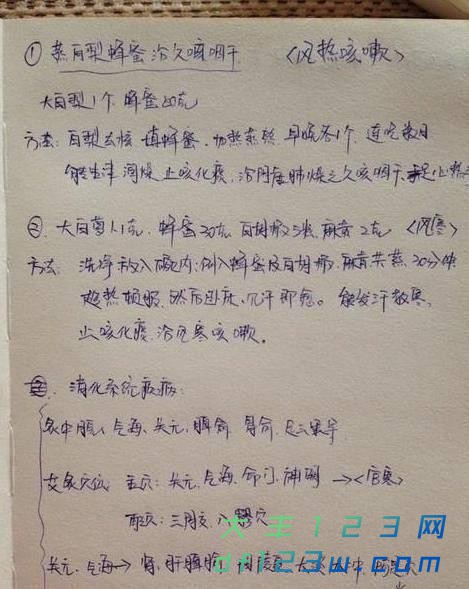 ① 蒸白梨蜂蜜治久咳咽干 〈风热咳嗽〉
大白梨1个 蜂蜜50克
方法: 白梨去核, 填蜂蜜, 加热蒸熟 早晚各1个, 连吃数日
能生津润燥 止咳化痰, 治阴虚肺燥之久咳咽干, 手足心热
②. 大白萝卜1克, 蜂蜜30克 白胡椒5粒, 麻黄2克 〈风寒〉
方法: 洗净 放入碗内, 倒入蜂蜜及白胡椒, 麻黄共蒸, 30分钟
趁热顿服, 然后卧床, 见汗即愈。 能发汗散寒,
止咳化痰, 治风寒咳嗽。
消化系统疾病:
灸中脘, 气海, 关元, 脾俞 胃俞, 足三里等
艾灸穴位 主穴: 关元, 气海, 命门, 神阙 → 〈宫寒〉
配穴: 三阴交, 八髎穴
关元, 气海 → 肾, 肝脾
大王123网
dw123w.com